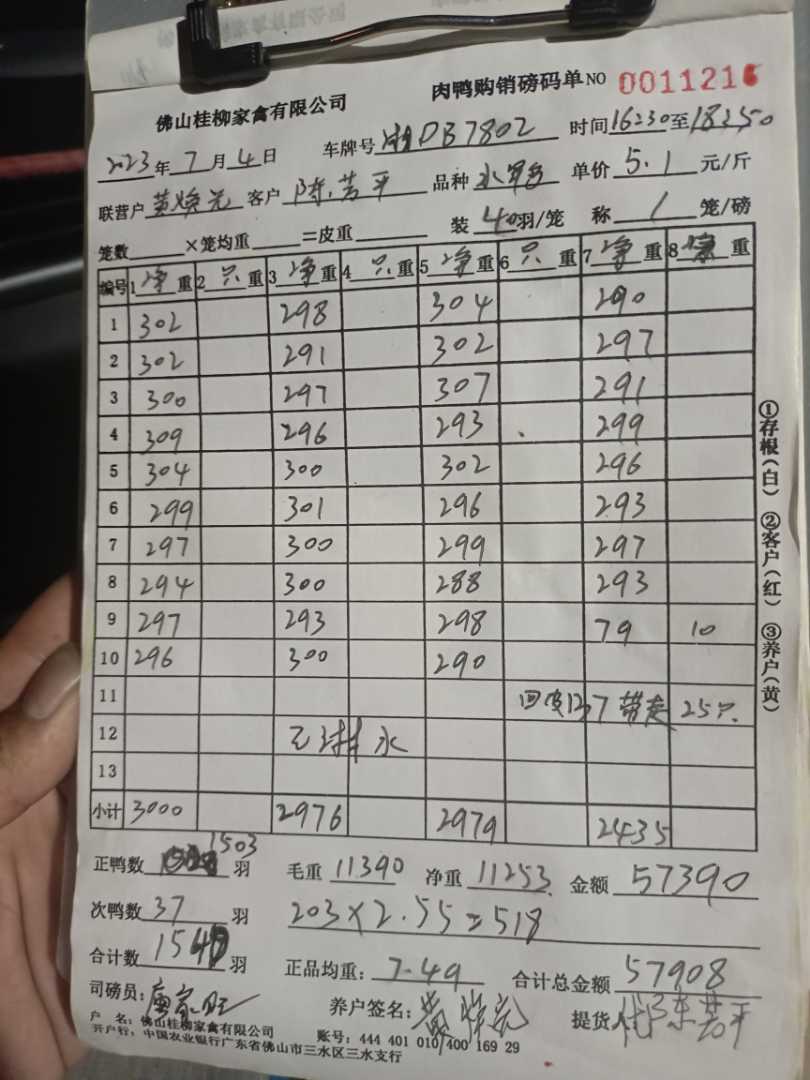 肉鸭购销磅码单NO 0011216
佛山桂柳家禽有限公司
2023年7月4日 车牌号湘DB7802 时间16230至18250
联营户黄焕光 客户陈芳平 品种水军鸭 单价5.1元/斤
笼数 ×笼均重 =皮重 装40羽/笼 称1笼/磅
编号 1净重 2只重 3净重 4只重 5净重 6只重 7净重 8重
1 302 298 304 290
2 302 291 302 297
3 300 297 307 291
4 309 296 293 299
5 304 300 302 296
6 299 301 296 293
7 297 300 299 297
8 294 300 288 293
9 297 293 298 79 10
10 296 300 290
11 回皮137 带走25只
12 已排水
13
小计 3000 2976 2979 2435
①存根(白) ②客户(红) ③养户(黄)
正鸭数1503羽 毛重11390 净重11253 金额57390
次鸭数37羽 203×2.55=518
合计数1540羽 正品均重:7.49 合计总金额57908
司磅员: 养户签名: 提货
户 名:佛山桂柳家禽有限公司 账号:444 401 010 400 169 29
开户行:中国农业银行广东省佛山市三水区三水支行